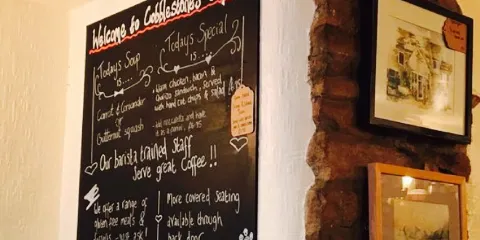 Welcome to Cobblestones
Today's Soup
is....
Carrot & Coriander
or
Butternut squash
Today's Special
is...
Warm chicken, bacon &
sandwich, served
with hand cut chips & salad
and have
it as a
Our barista trained staff
Serve great Coffee!!
We offer a range of
gluten free meals &
ask!
More covered seating
available through
back door